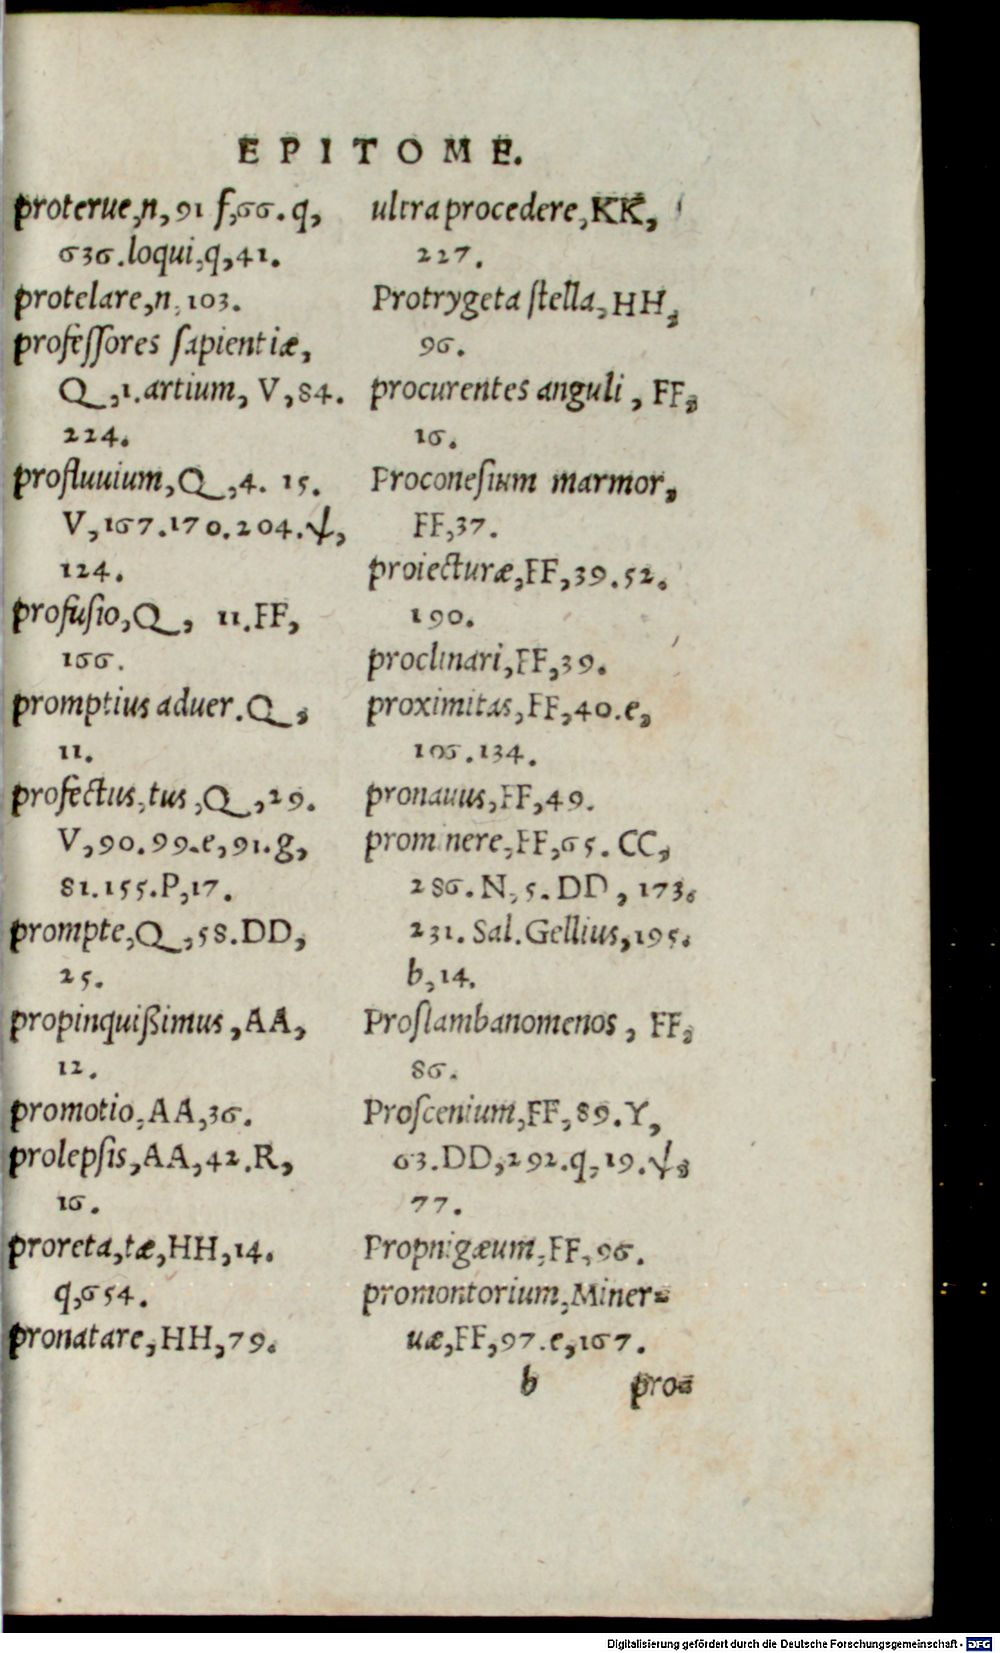 EPITOME.
proterue,n,91 f,66.q,
636.loqui,q,41.
protelare,n,103.
professores sapientiæ,
Q,1.artium, V,84.
224.
profluuium,Q,4. 15.
V,167.170.204.ψ,
124.
profusio,Q, 11.FF,
166.
promptius aduer.Q,
11.
profectus,tus,Q,29.
V,90.99.e,91.g,
81.155.P,17.
prompte,Q,58.DD,
25.
propinquißimus,AA,
12.
promotio,AA,36.
prolepsis,AA,42.R,
16.
proreta,tæ,HH,14.
q,654.
pronatare,HH,79.
ultra procedere,KK,
227.
Protrygeta stella,HH,
96.
procurentes anguli, FF,
16.
Proconesium marmor,
FF,37.
proiecturæ,FF,39.52.
190.
proclinari,FF,39.
proximitas,FF,40.e,
106.134.
pronauus,FF,49.
prominere,FF,65.CC,
286.N,5.DD, 173.
231.Sal.Gellius,195.
b,14.
Proslambanomenos, FF,
86.
Proscenium,FF,89.Y,
63.DD,292.q,19.ψ,
77.
Propnigæum,FF,96.
promontorium,Miner=
uæ,FF,97.e,167.
b pro=
Digitalisierung gefördert durch die Deutsche Forschungsgemeinschaft - DFG